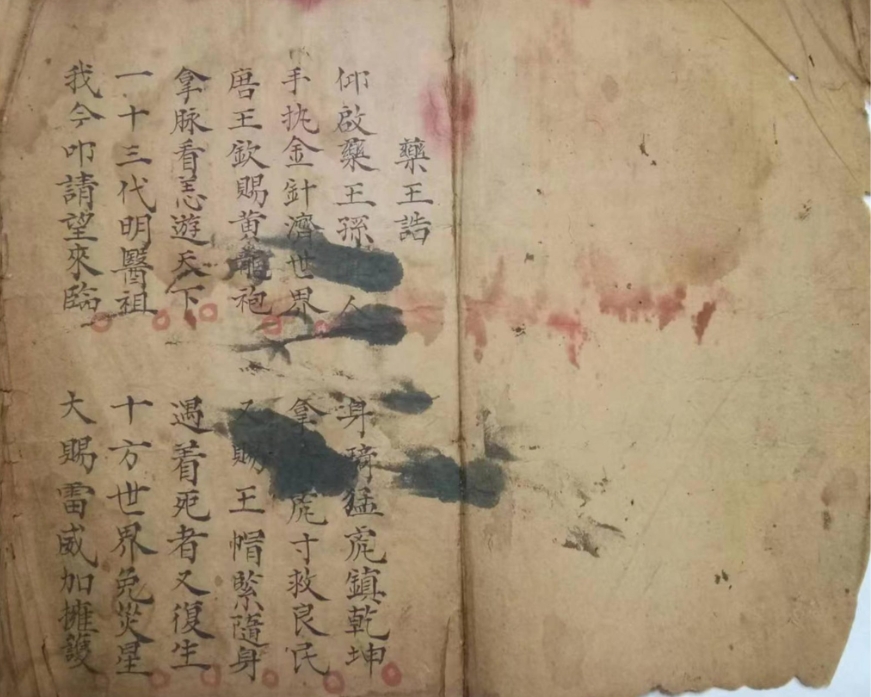 藥王誥
仰啟藥王孫人 身琦猛虎鎮乾坤
手执金針濟世界 拿虎寸救良民
唐王欽賜黄袍 又賜王帽緊隨身
拿脉看恙遊天下 遇着死者又復生
一十三代明醫祖 十方世界免災星
我今叩請望來臨 大賜雷威加擁護